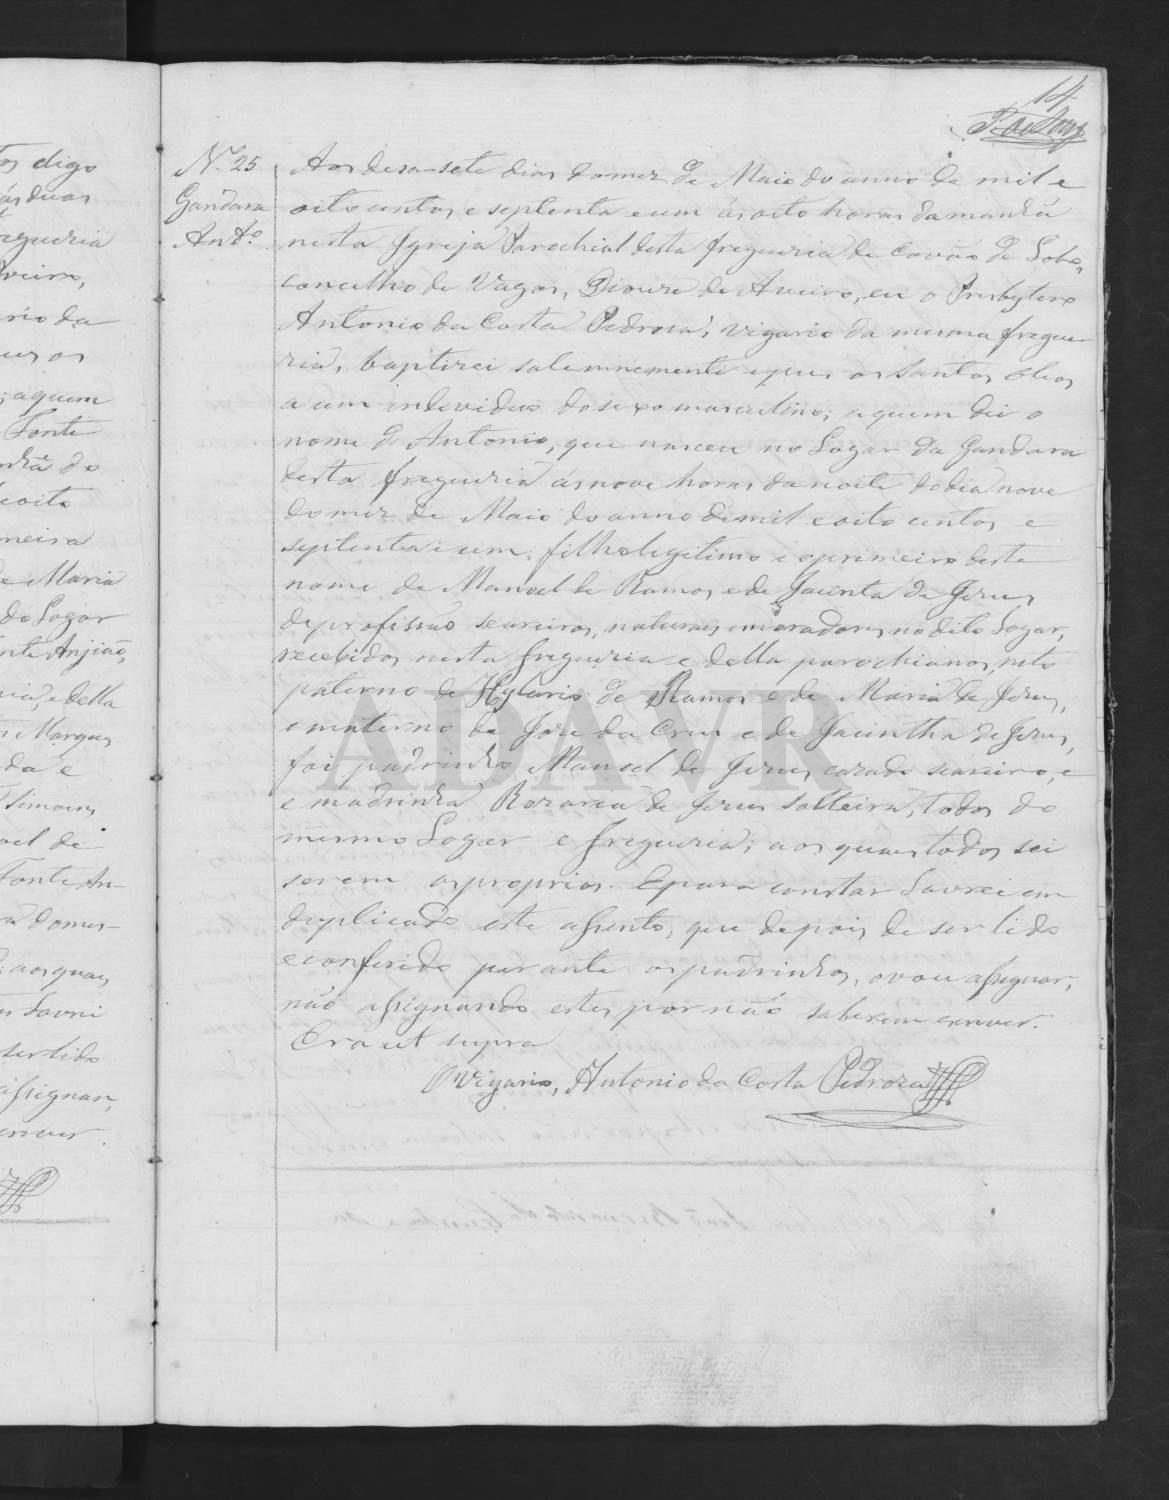 14
N.º 25
Gandara
Antº
Aos desa-sete dias do mez de Maio do anno de mil e
oito centos e septenta e um ás oito horas da manhã
nesta Igreja Parochial desta freguezia de Covão de Lobo,
concelho de Vagos, Diocese de Aveiro, eu o Presbytero
Antonio da Costa Pedrosa, vigario da mesma fregue-
zia, baptizei solemnemente e puz os Santos Oleos
a um individuo do sexo masculino; a quem dei o
nome de Antonio, que nasceu no Logar da Gandara
desta freguezia ás nove horas da noite do dia nove
do mez de Maio do anno de mil e oito centos e
septenta e um; filho legitimo e o primeiro deste
nome de Manoel de Ramos e de Jacinta de Jezus
de profissão seareiros, naturaes e moradores no dito Logar,
recebidos nesta freguezia e della parochianos, neto
paterno de Hylario de Ramos e de Maria de Jezus,
e materno de Joze da Cruz e de Jacintha de Jezus,
foi padrinho Manoel de Jezus cazado seareiro, e
e madrinha Rozaria de Jezus solteira, todos do
mesmo Logar e freguezia; aos quaes todos sei
serem os proprios. E para constar lavrei em
duplicado este assento, que depois de ser lido
e conferido perante os padrinhos, o vou assignar,
não assignando estes por não saberem escrever.
Era ut supra
O Vigario, Antonio da Costa Pedrosa
os digo
ás duas
reguezia
Aveiro,
rio da
uz os
; a quem
Fonte
nhã do
e oito
meiro
de Maria
do Logar
nte Anjião,
zia, e della
Marques
da e
Simoens
oel de
Fonte An-
a domes-
; aos quaes
Lavrei
ser lido
assignar,
crever.
ADAVR